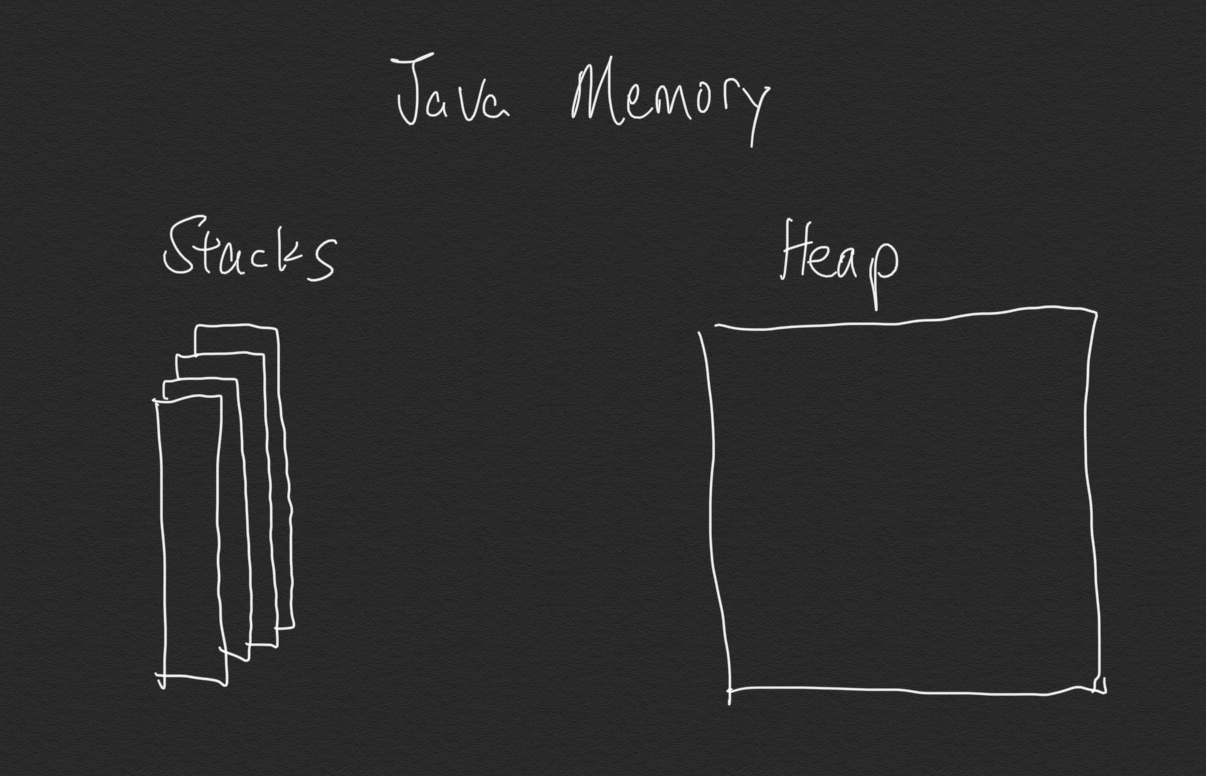 Java Memory
Stacks
Heap